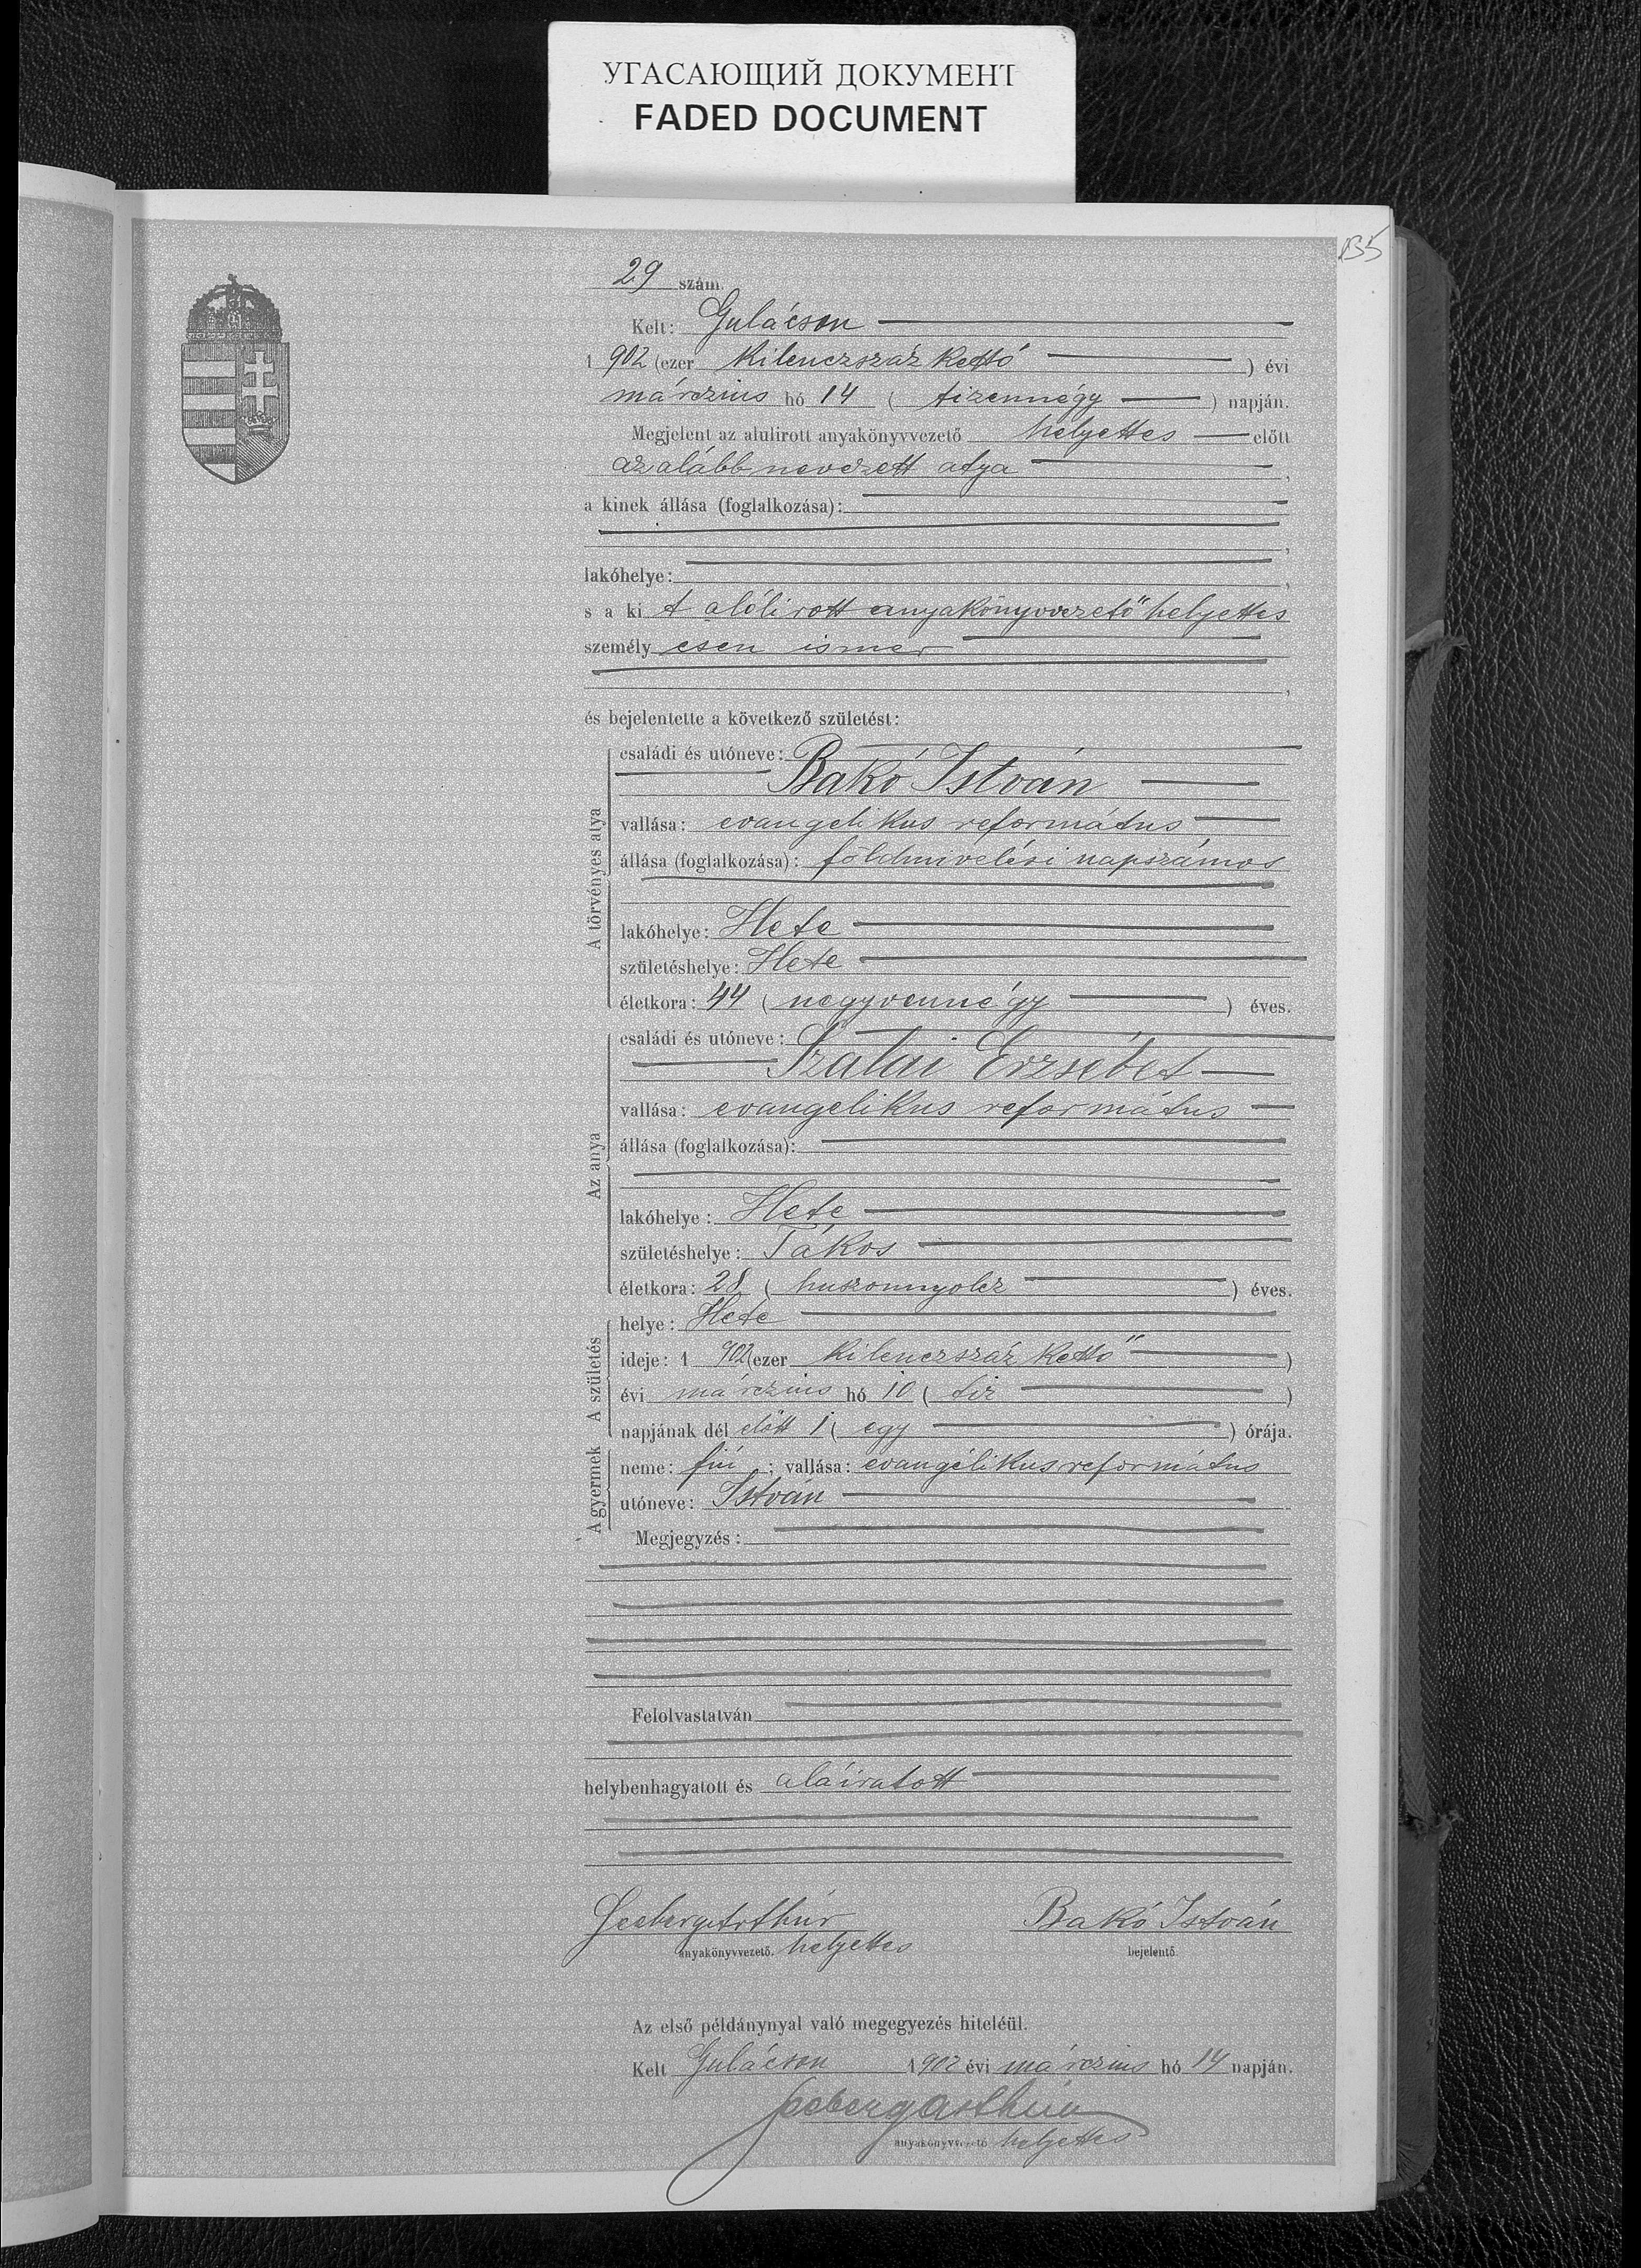 УГАСАЮЩИЙ ДОКУМЕНТ
FADED DOCUMENT
135
29 szám.
Kelt: Gulácson
1 902 (ezer kilenczszáz kettő) évi
márczius hó 14 ( tizennégy ) napján.
Megjelent az alulirott anyakönyvvezető helyettes előtt
az alább nevezett atya,
a kinek állása (foglalkozása):
,
lakóhelye: ,
s a ki t alólirott anyakönyvvezető helyettes
személy esen ismer
,
és bejelentette a következő születést:
A törvényes atya
családi és utóneve:
Bakó István
vallása: evangelikus református
állása (foglalkozása): földmivelési napszámos
lakóhelye: Hete
születéshelye: Hete
életkora: 44 ( negyvennégy ) éves.
Az anya
családi és utóneve:
Szalai Erzsébet
vallása: evangelikus református
állása (foglalkozása):
lakóhelye: Hete
születéshelye: Tákos
életkora: 28 ( huszonnyolcz ) éves.
A születés
helye: Hete
ideje: 1 902 (ezer kilenczszáz kettő )
évi márczius hó 10 ( tiz )
napjának dél előtt 1 ( egy ) órája.
A gyermek
neme: fiú ; vallása: evangélikus református
utóneve: István
Megjegyzés:
Felolvastatván
helybenhagyatott és aláiratott
Seeberg Arthúr Bakó István
anyakönyvvezető. helyettes bejelentő.
Az első példánynyal való megegyezés hiteléül.
Kelt Gulácson 1902 évi márczius hó 14 napján.
Seeberg Arthúr
anyakönyvvezető helyettes